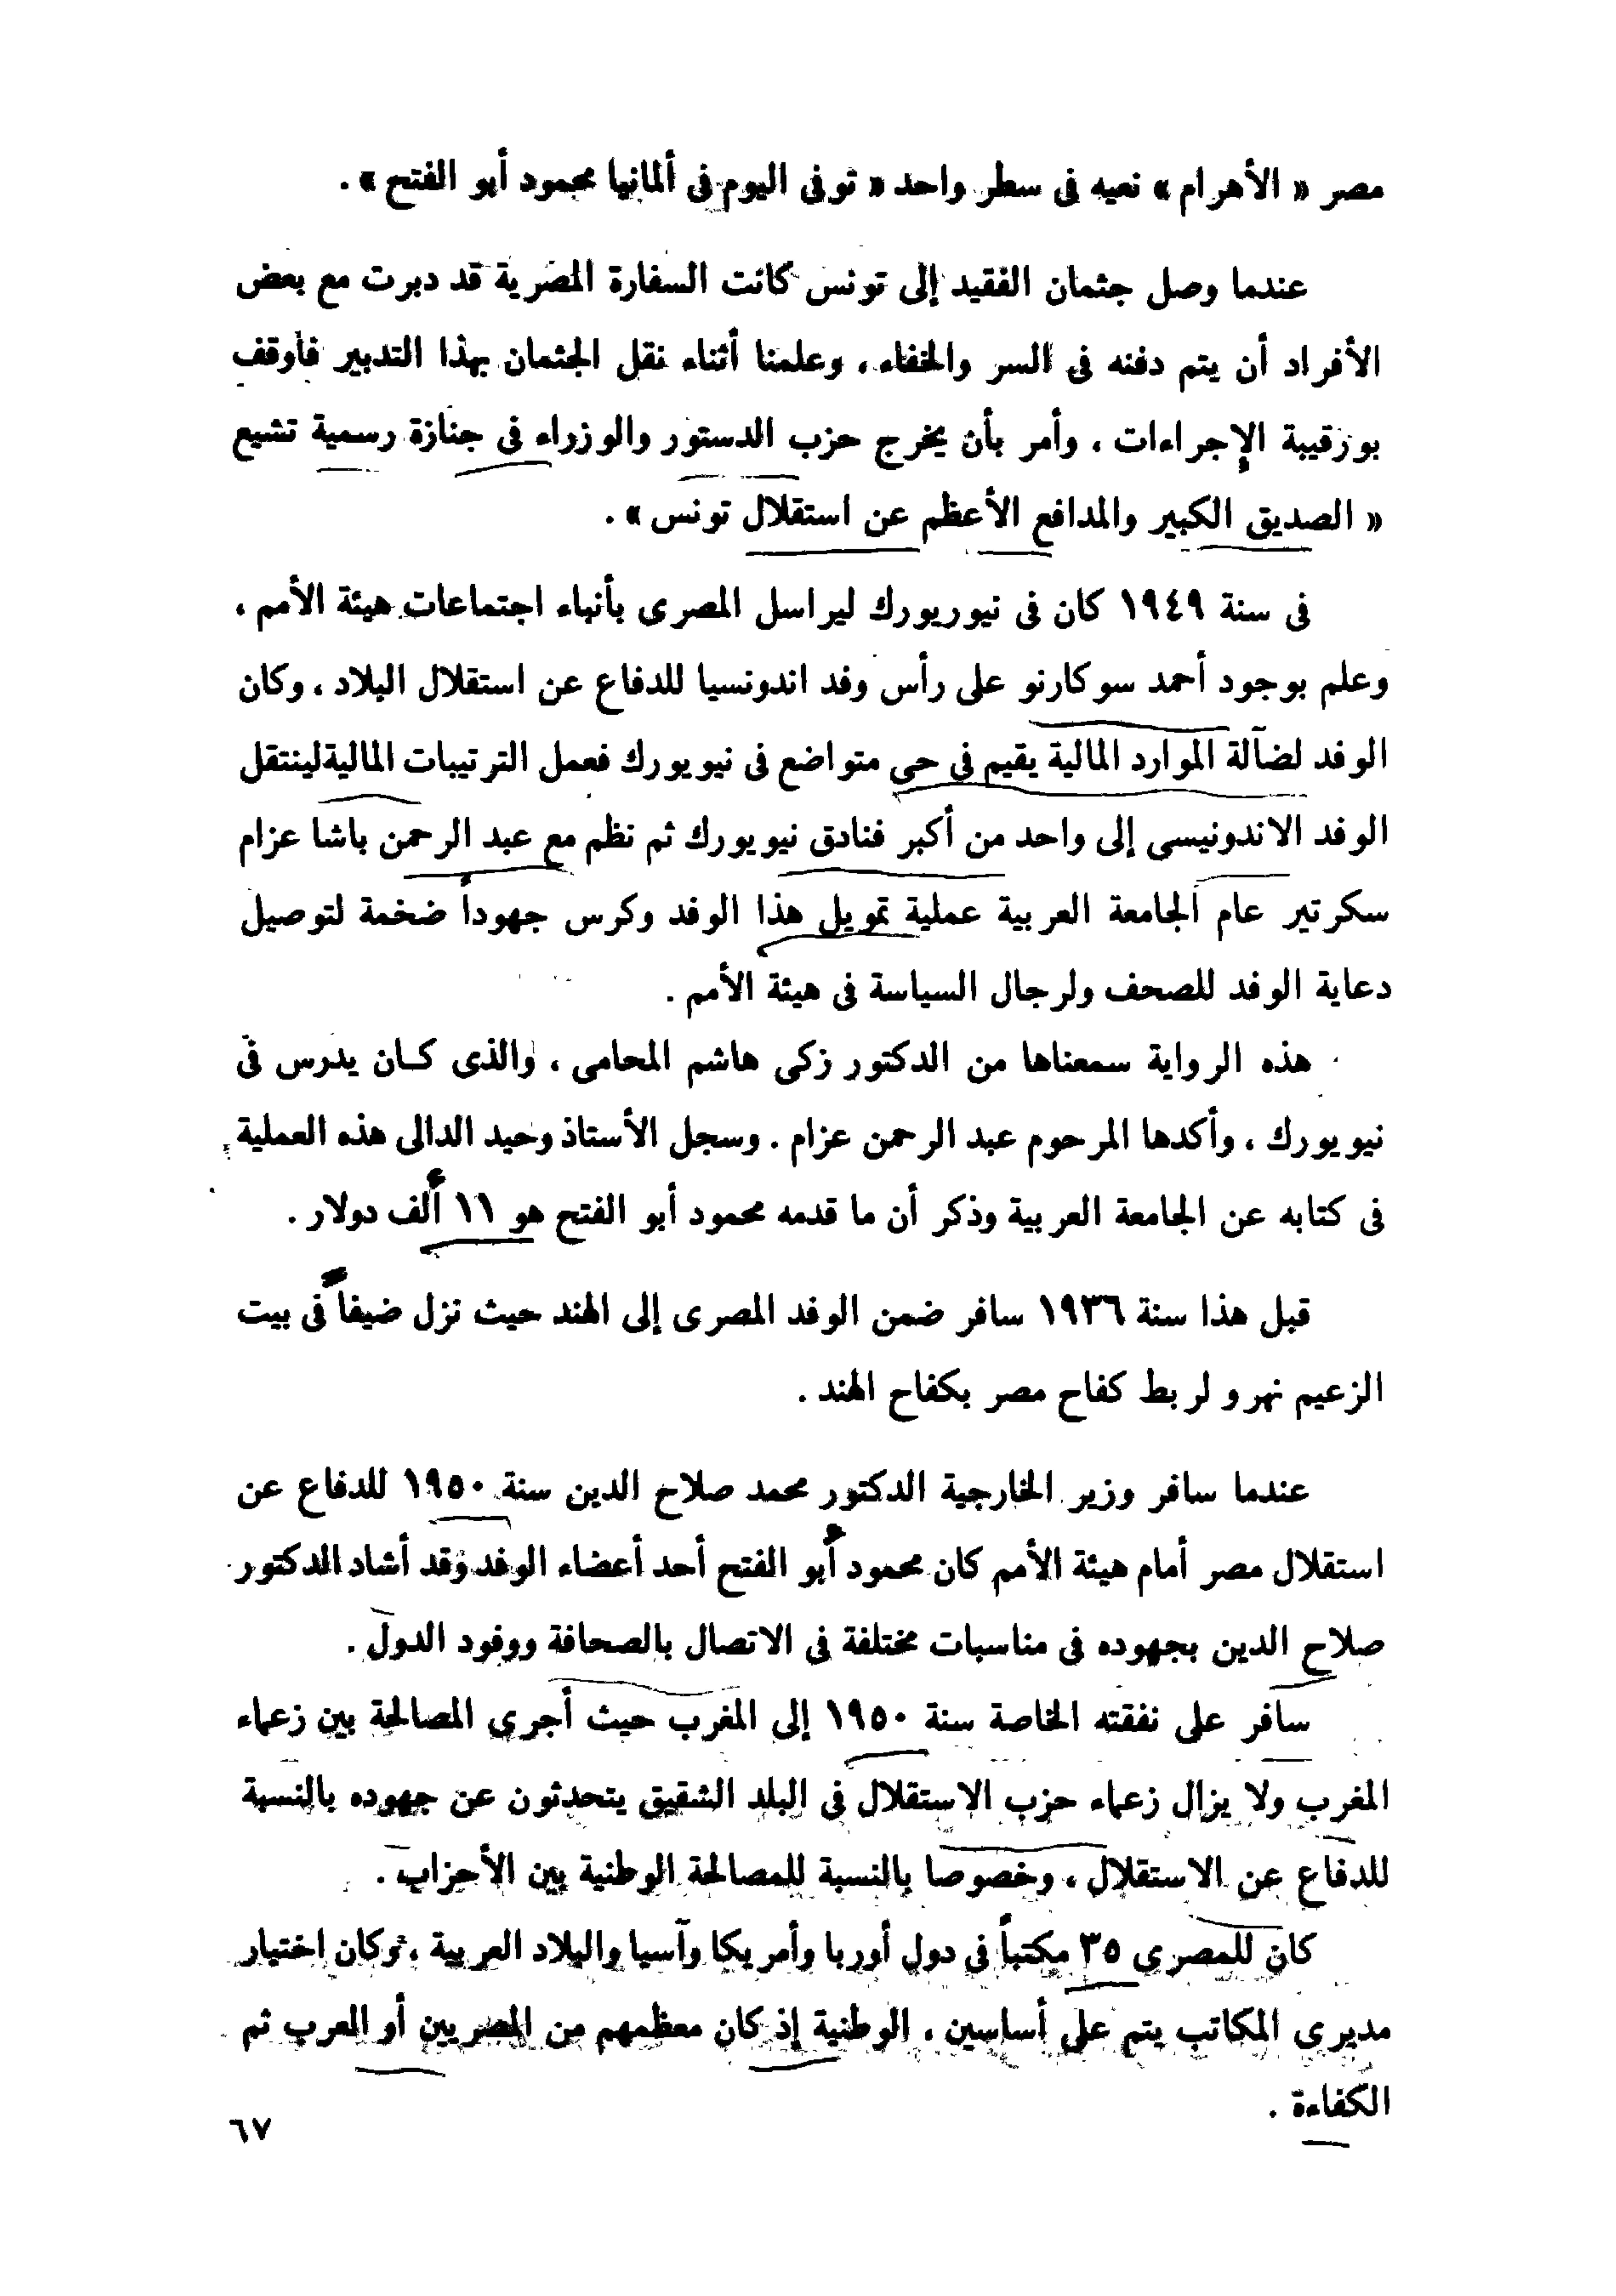 مصر « الأهرام » نعيه فى سطر واحد « توفى اليوم فى ألمانيا محمود أبو الفتح » .
عندما وصل جثمان الفقيد إلى تونس كانت السفارة المصرية قد دبرت مع بعض
الأفراد أن يتم دفنه فى السر والخفاء ، وعلمنا أثناء نقل الجثمان بهذا التدبير فأوقف
بورقيبة الإجراءات ، وأمر بأن يخرج حزب الدستور والوزراء فى جنازة رسمية تشيع
« الصديق الكبير والمدافع الأعظم عن استقلال تونس » .
فى سنة ١٩٤٩ كان فى نيوريورك ليراسل المصرى بأنباء اجتماعات هيئة الأمم ،
وعلم بوجود أحمد سوكارنو على رأس وفد اندونسيا للدفاع عن استقلال البلاد ، وكان
الوفد لضآلة الموارد المالية يقيم فى حى متواضع فى نيويورك فعمل الترتيبات المالية لينتقل
الوفد الاندونيسى إلى واحد من أكبر فنادق نيويورك ثم نظم مع عبد الرحمن باشا عزام
سكرتير عام الجامعة العربية عملية تمويل هذا الوفد وكرس جهوداً ضخمة لتوصيل
دعاية الوفد للصحف ولرجال السياسة فى هيئة الأمم .
هذه الرواية سمعناها من الدكتور زكى هاشم المحامى ، والذى كان يدرس فى
نيويورك ، وأكدها المرحوم عبد الرحمن عزام . وسجل الأستاذ وحيد الدالى هذه العملية
فى كتابه عن الجامعة العربية وذكر أن ما قدمه محمود أبو الفتح هو ١١ ألف دولار .
قبل هذا سنة ١٩٣٦ سافر ضمن الوفد المصرى إلى الهند حيث نزل ضيفاً فى بيت
الزعيم نهرو لربط كفاح مصر بكفاح الهند .
عندما سافر وزير الخارجية الدكتور محمد صلاح الدين سنة ١٩٥٠ للدفاع عن
استقلال مصر أمام هيئة الأمم كان محمود أبو الفتح أحد أعضاء الوفد وقد أشاد الدكتور
صلاح الدين بجهوده فى مناسبات مختلفة فى الاتصال بالصحافة ووفود الدول .
سافر على نفقته الخاصة سنة ١٩٥٠ إلى المغرب حيث أجرى المصالحة بين زعماء
المغرب ولا يزال زعماء حزب الاستقلال فى البلد الشقيق يتحدثون عن جهوده بالنسبة
للدفاع عن الاستقلال ، وخصوصا بالنسبة للمصالحة الوطنية بين الأحزاب .
كان للمصرى ٣٥ مكتباً فى دول أوربا وأمريكا وآسيا والبلاد العربية ، وكان اختيار
مديرى المكاتب يتم على أساسين ، الوطنية إذ كان معظمهم من المصريين أو العرب ثم
الكفاءة .
٦٧